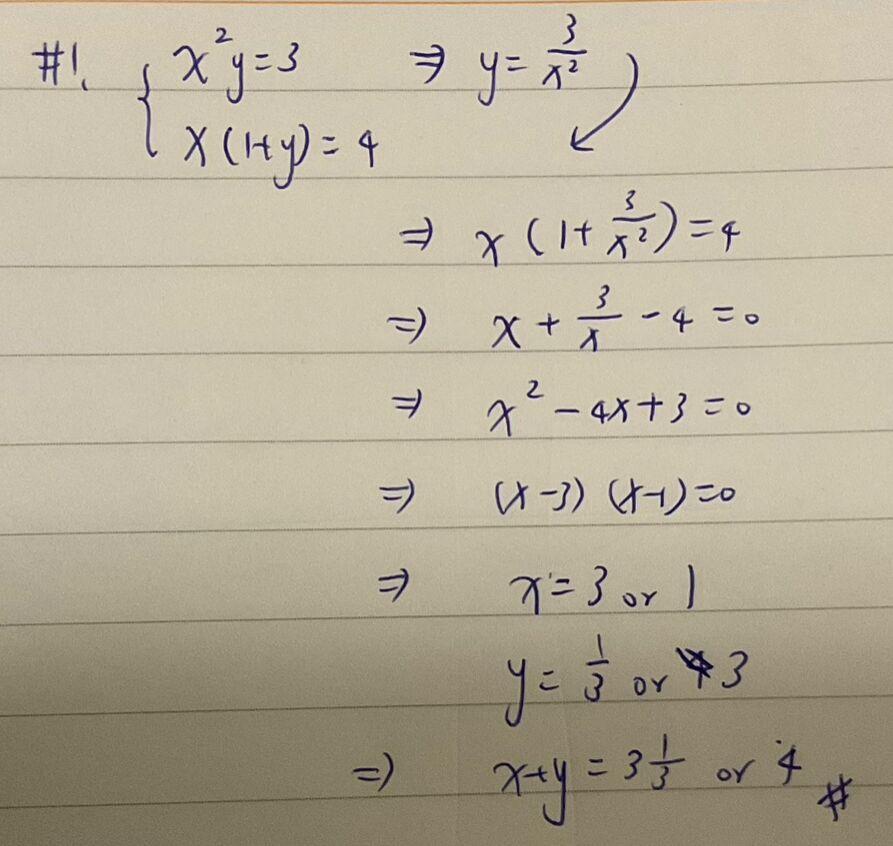 #1. { x²y=3 ⇒ y= 3/x²
x(1+y)=4
⇒ x(1+ 3/x²)=4
⇒ x + 3/x - 4 =0
⇒ x² - 4x+3 =0
⇒ (x-3) (x-1)=0
⇒ x=3 or 1
y= 1/3 or 3
⇒ x+y = 3 1/3 or 4 #